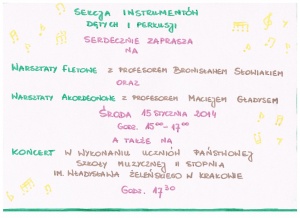 SEKCJA INSTRUMENTÓW
DĘTYCH I PERKUSJI
SERDECZNIE ZAPRASZA
NA
WARSZTATY FLETOWE Z PROFESOREM BRONISŁAWEM SŁOWIAKIEM
ORAZ
WARSZTATY AKORDEONOWE Z PROFESOREM MACIEJEM GŁADYSEM
ŚRODA 15 STYCZNIA 2014
GODZ. 15⁰⁰-17⁰⁰
A TAKŻE NA
KONCERT W WYKONANIU UCZNIÓW PAŃSTWOWEJ
SZKOŁY MUZYCZNEJ II STOPNIA
IM. WŁADYSŁAWA ŻELEŃSKIEGO W KRAKOWIE
GODZ. 17³⁰